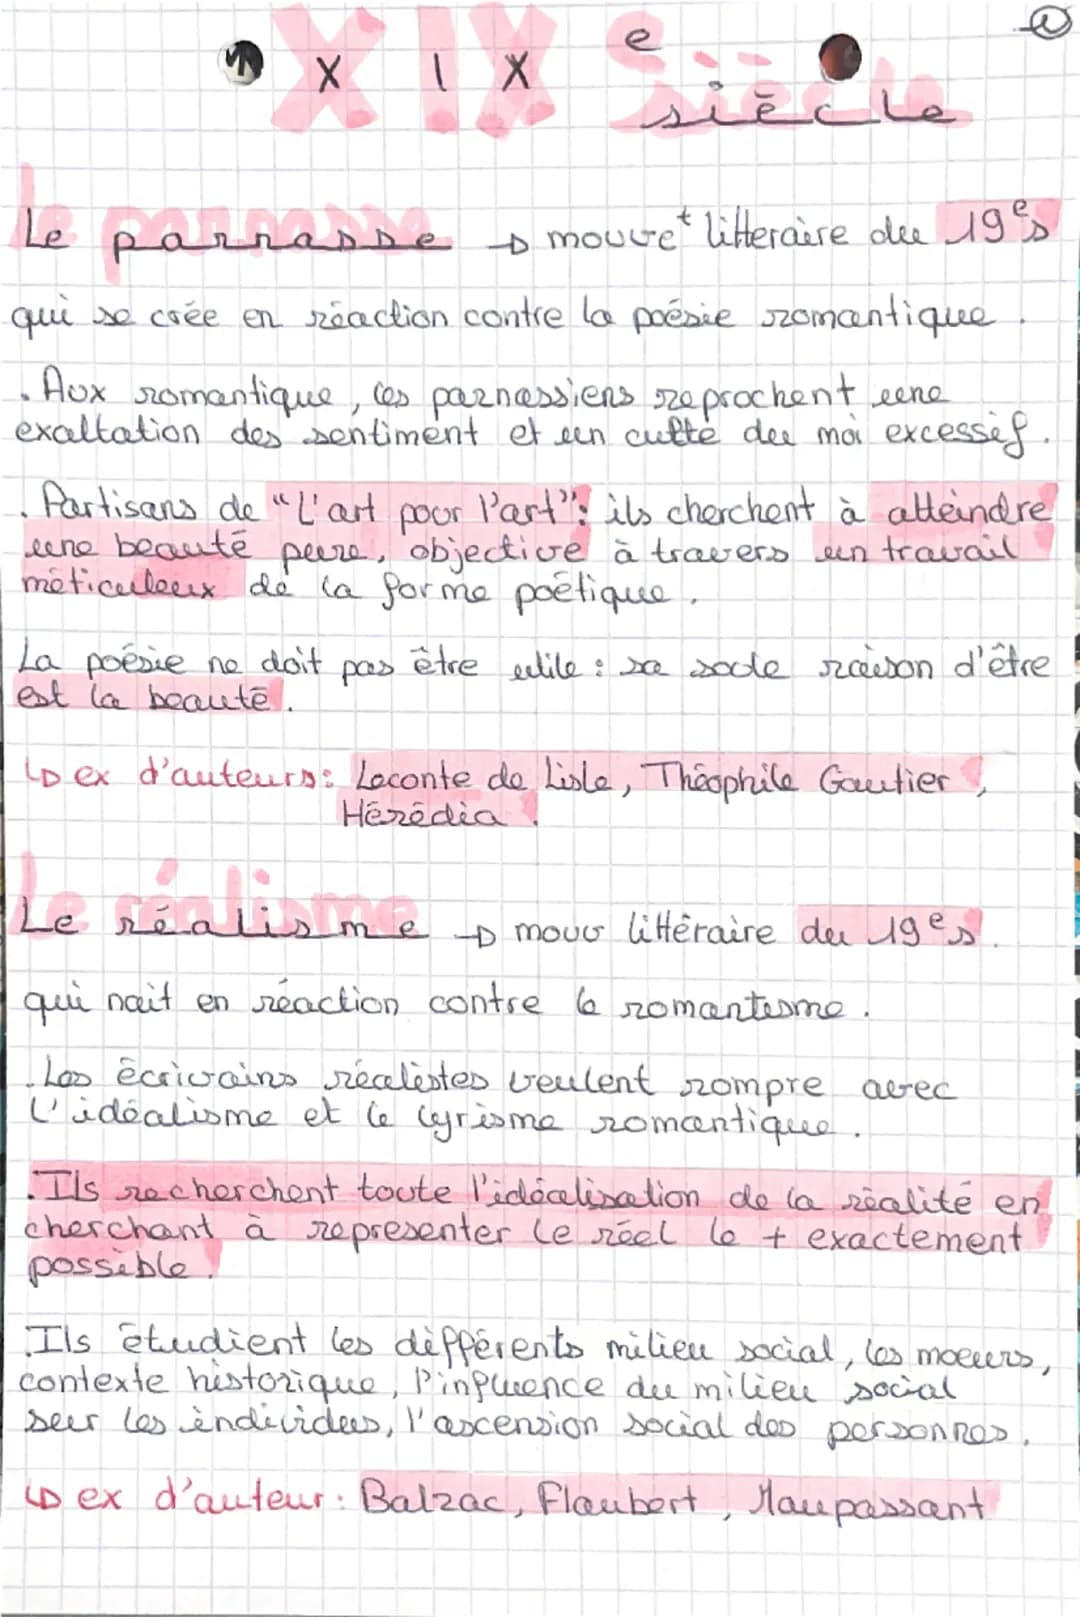 XIXe siècle
Le parnasse → mouvet litteraire du 19e s
qui se crée en réaction contre la poésie romantique.
. Aux romantique, les parnassiens reprochent une
exaltation des sentiment et un culte du moi excessif.
. Partisans de "L'art pour l'art": ils cherchent à atteindre
une beauté pure, objective à travers un travail
méticuleux de la forme poétique.
La poésie ne doit pas être utile : sa seule raison d'être
est la beauté.
↳ ex d'auteurs: Leconte de Lisle, Théophile Gautier,
Hérédia.
Le réalisme → mouv littéraire du 19e s.
qui nait en réaction contre le romantisme.
. Les écrivains réalistes veulent rompre avec
l'idéalisme et le lyrisme romantique.
. Ils recherchent toute l'idéalisation de la réalité en
cherchant à representer le réel le + exactement
possible.
. Ils étudient les différents milieu social, les moeurs,
contexte historique, l'influence du milieu social
sur les individus, l'ascension social des personnes.
↳ ex d'auteur: Balzac, Flaubert, Maupassant